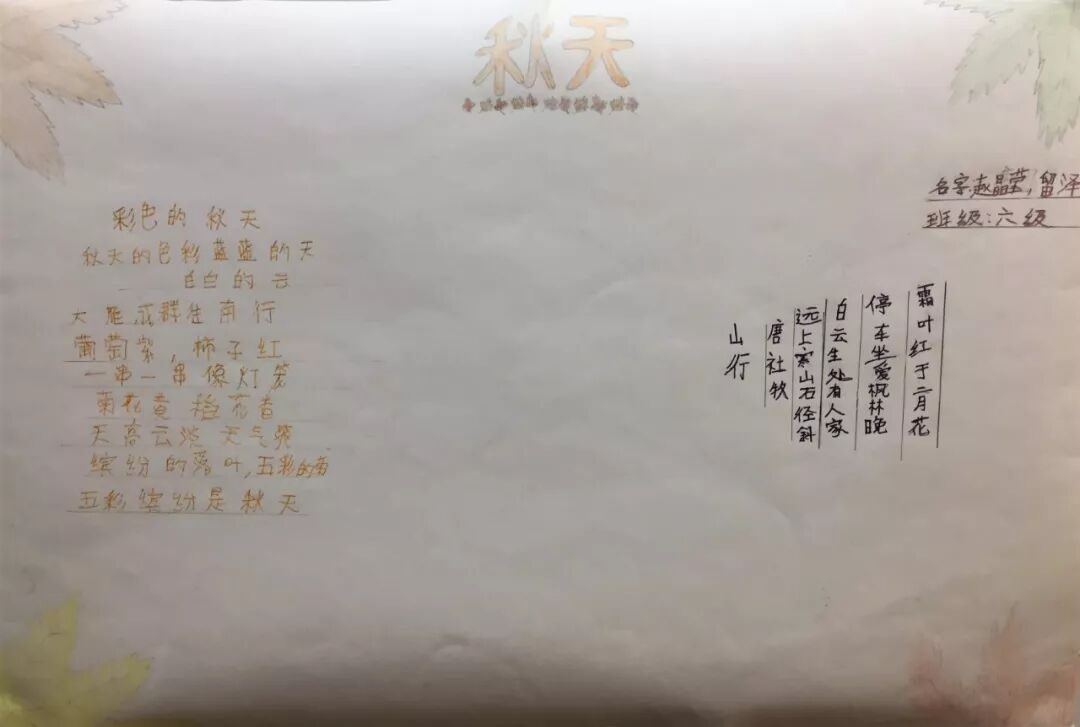 秋天
名字:赵晶荣,留泽
班级:六级
彩色的秋天
秋天的色彩蓝蓝的天
白白的云
大雁成群往南行
葡萄紫,柿子红
一串一串像灯笼
菊花黄 稻花香
天高云淡 天气爽
缤纷的落叶,五彩的
五彩缤纷是秋天
山行
唐社牧
远上寒山石径斜
白云生处有人家
停车坐爱枫林晚
霜叶红于二月花